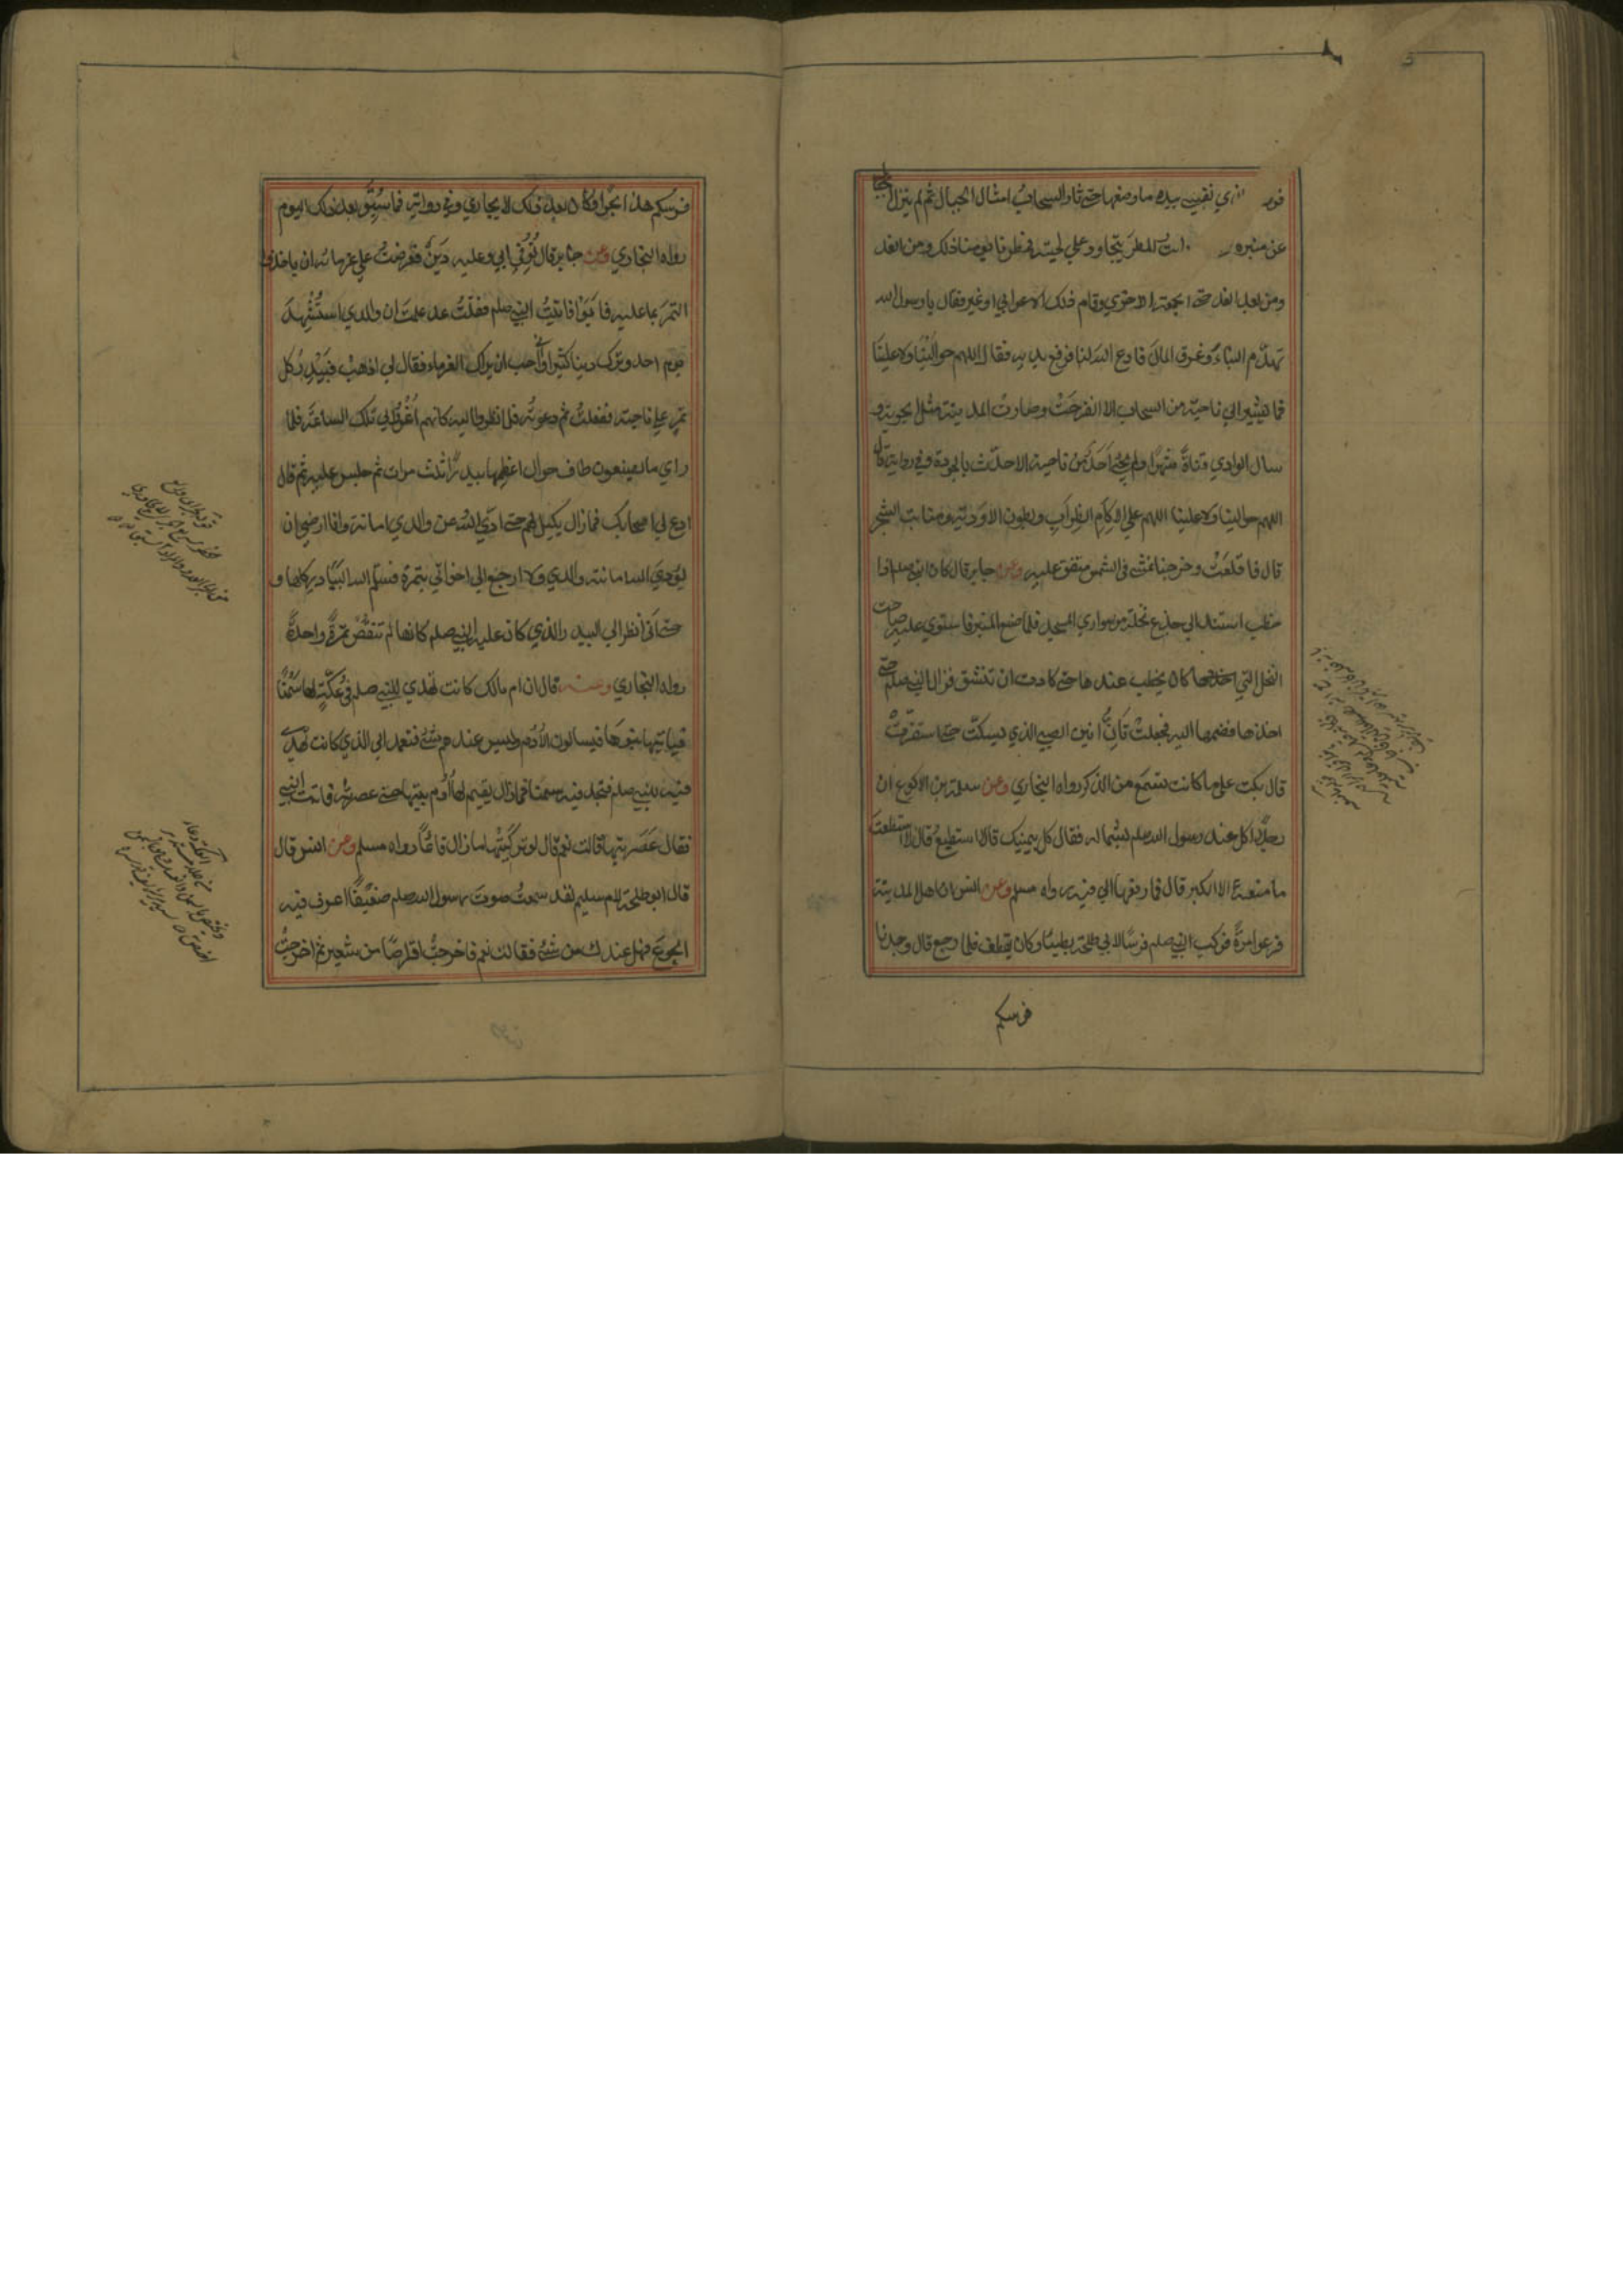 فور الذي نفسي بيده ما وضعها حتى ثار السحاب امثال الجبال ثم لم ينزل
عن منبره رايت المطر يتحاور على لحيته فمطرنا يومنا ذلك ومن الغد
ومن بعد الغد حتى الجمعة الاخرى وقام ذلك الاعرابي او غيره فقال يا رسول الله
تهدّم البناءُ وغرق المالُ فادع الله لنا فرفع يديه فقال اللهم حوالَيْنا ولا علينَا
فما يشير الى ناحية من السحاب الا انفرجَتْ وصارت المدينة مثل الجوبة و
سال الوادي قناةً شهرًا ولم يجئ احَدٌ من ناحية الا حدّث بالجود وفي رواية قال
اللهم حوالينا ولا علينا اللهم على الاكام والظراب وبطون الاودية ومنابت الشجر
قال فاقلعَتْ وخرجنا نمشي في الشمس متفق عليه وعن جابر قال كان النبي صلعم اذا
خطب استند الى جذع نخلة من سواري المسجد فلما صنع المنبر فاستوى عليه صاحت
النخل التي كان يخطب عندها حتى كادت ان تنشق فنزل النبي صلعم حتى
اخذها فضمها اليه فجعلتْ تَاِنُّ انين الصبي الذي يسكّت حتى استقرّتْ
قال بكت على ما كانت تسمع من الذكر رواه البخاري وعن سلمة بن الاكوع ان
رجلًا اكل عند رسول الله صلعم بشماله فقال كل بيمينك قال لا استطيعُ قال لا استطعتَ
ما منعه الا الكبر قال فما رفعها الى فيه رواه مسلم وعن انس ان اهل المدينة
فزعوا مرةً فركب النبي صلعم فرسًا لابي طلحة بطيئًا وكان يقطف فلما رجع قال وجدنا
فرسكم
فرسكم هذا بحرًا فكان بعد ذلك لا يجارى وفي رواية فما سُبِقَ بعد ذلك اليوم
رواه البخاري وعن جابر قال تُوُفّي ابي وعليه دَينٌ فعرضتُ على غرمائه ان ياخذوا
التمرَ بما عليه فابَوْا فاتيتُ النبي صلعم فقلتُ قد علمتَ ان والدي استُشْهِدَ
يوم احد وترك دينا كثيرا واني احب ان يراك الغرماء فقال لي اذهبْ فبَيْدِر كل
تمرٍ على ناحية ففعلتُ ثم دعوتُه فلما نظروا اليه كانهم اُغْرُوا بي تلك الساعةَ فلما
راى ما يصنعون طاف حول اعظمها بيدرًا ثلث مرات ثم جلس عليه ثم قال
ادع لي اصحابك فما زال يكيل لهم حتى ادّى الله عن والدي امانته وانا ارضى ان
يؤدي الله امانة والدي ولا ارجع الى اخواتي بتمرة فسلّم الله البيادر كلها و
حتى اني انظر الى البيدر الذي كان عليه النبي صلعم كانها لم تنقُصْ تمرةً واحدةً
رواه البخاري وعنه قال ان ام مالك كانت تهدي للنبي صلعم في عُكّةٍ لها سَمْنًا
فياتيها بنوها فيسالون الاُدُم وليس عندهم شئ فتعمد الى الذي كانت تهدي
فيه للنبي صلعم فتجد فيه سمنا فما زال يقيم لها اُدُم بيتها حتى عصرته فاتت النبي
فقال عَصَرتيها قالت نعم قال لو تركتيها ما زال قائمًا رواه مسلم وعن انس قال
قال ابو طلحة لام سليم لقد سمعتُ صوتَ رسول الله صلعم ضعيفًا اعرف فيه
الجوع فهل عندك من شئ فقالت نعم فاخرجتْ اقراصًا من شعير ثم اخرجتْ